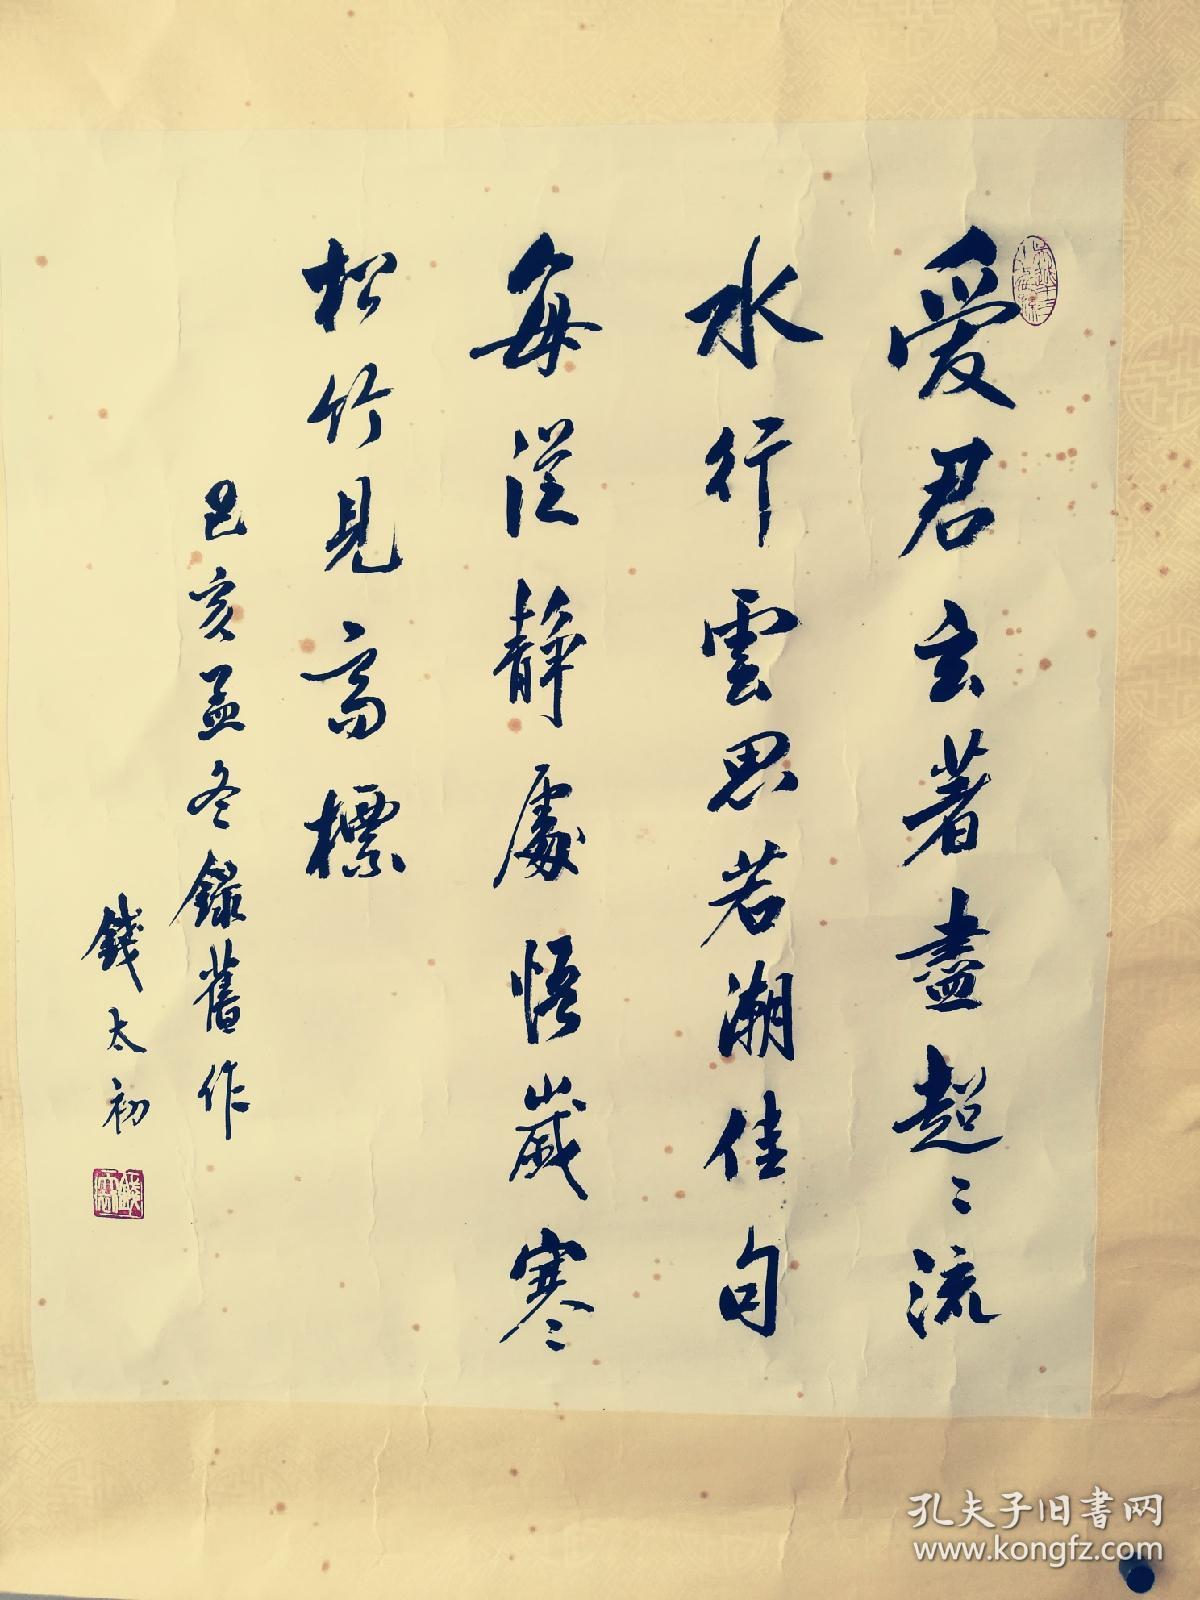 爱君玄著盡超〻流
水行雲思若潮佳句
每從静處悟歲寒
松竹見高標
己亥孟冬錄舊作
錢太初
孔夫子旧書网
www.kongfz.com